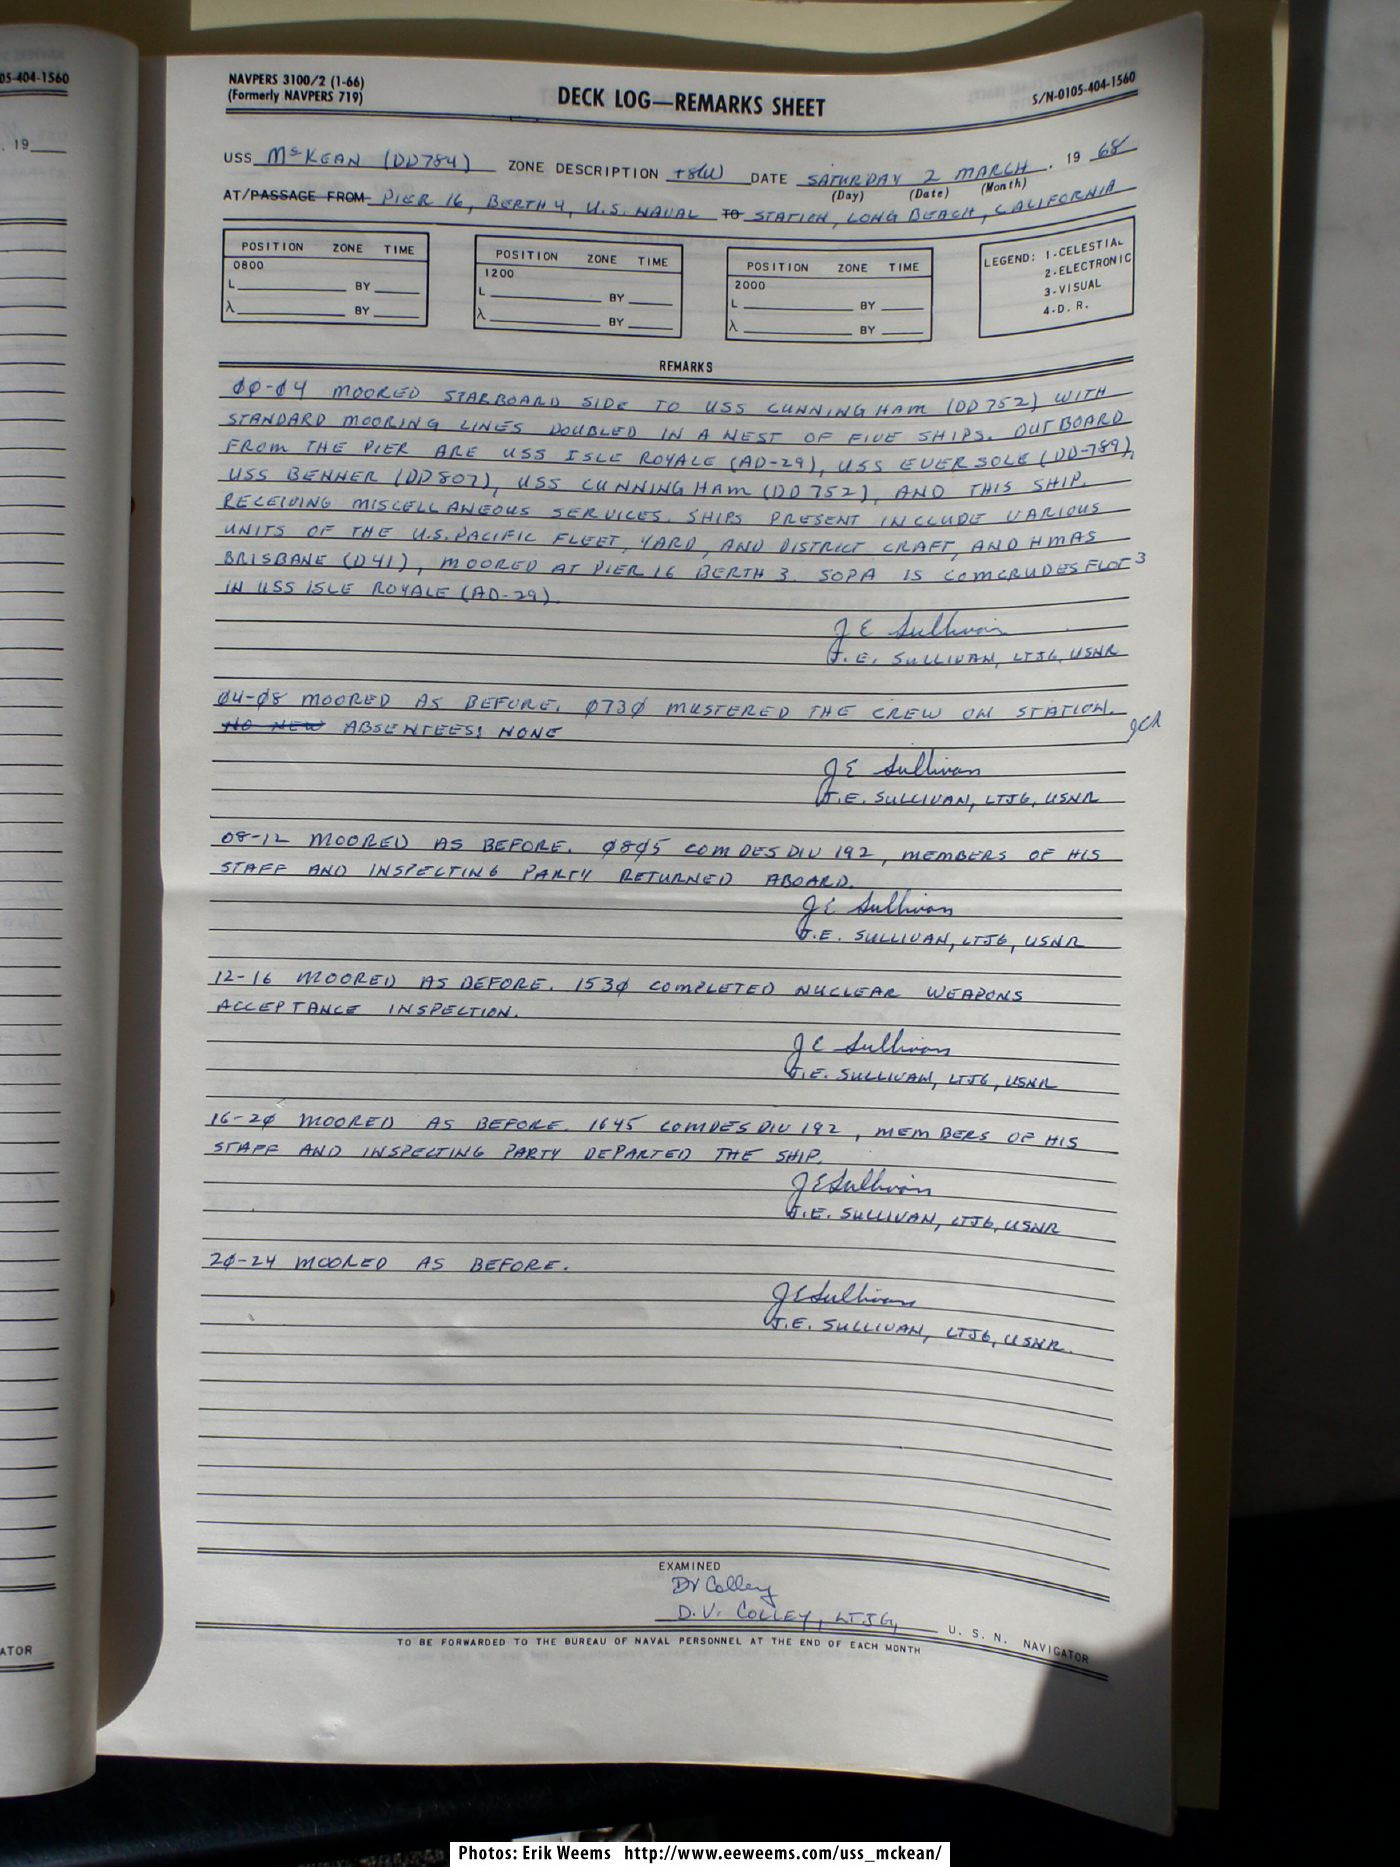 05-404-1560
NAVPERS 3100/2 (1-66)
(Formerly NAVPERS 719)
DECK LOG—REMARKS SHEET
S/N-0105-404-1560
, 19
USS McKEAN (DD784) ZONE DESCRIPTION +8U DATE SATURDAY 2 MARCH . 19 68
(Day) (Date) (Month)
AT/PASSAGE FROM PIER 16, BERTH 4, U.S. NAVAL TO STATION, LONG BEACH, CALIFORNIA
POSITION ZONE TIME
0800
L BY
λ BY
POSITION ZONE TIME
1200
L BY
λ BY
POSITION ZONE TIME
2000
L BY
λ BY
LEGEND: 1-CELESTIAL
2-ELECTRONIC
3-VISUAL
4-D. R.
REMARKS
00-04 MOORED STARBOARD SIDE TO USS CUNNINGHAM (DD752) WITH
STANDARD MOORING LINES DOUBLED IN A NEST OF FIVE SHIPS. OUTBOARD
FROM THE PIER ARE USS ISLE ROYALE (AD-29), USS EVERSOLE (DD-789),
USS BENNER (DD807), USS CUNNINGHAM (DD752), AND THIS SHIP.
RECEIVING MISCELLANEOUS SERVICES. SHIPS PRESENT INCLUDE VARIOUS
UNITS OF THE U.S. PACIFIC FLEET, YARD, AND DISTRICT CRAFT, AND HMAS
BRISBANE (D41), MOORED AT PIER 16 BERTH 3. SOPA IS COMCRUDESFLOT 3
IN USS ISLE ROYALE (AD-29).
J E Sullivan
J. E. SULLIVAN, LTJG, USNR
04-08 MOORED AS BEFORE. 0730 MUSTERED THE CREW ON STATION.
NO NEW ABSENTEES: NONE
J E Sullivan
J. E. SULLIVAN, LTJG, USNR
08-12 MOORED AS BEFORE. 0805 COMDESDIV 192, MEMBERS OF HIS
STAFF AND INSPECTING PARTY RETURNED ABOARD.
J E Sullivan
J. E. SULLIVAN, LTJG, USNR
12-16 MOORED AS BEFORE. 1530 COMPLETED NUCLEAR WEAPONS
ACCEPTANCE INSPECTION.
J E Sullivan
J. E. SULLIVAN, LTJG, USNR
16-20 MOORED AS BEFORE. 1645 COMDESDIV 192, MEMBERS OF HIS
STAFF AND INSPECTING PARTY DEPARTED THE SHIP.
J E Sullivan
J. E. SULLIVAN, LTJG, USNR
20-24 MOORED AS BEFORE.
J E Sullivan
J. E. SULLIVAN, LTJG, USNR.
EXAMINED
DV Colley
D. V. COLLEY, LTJG, U. S. N. NAVIGATOR
ATOR
TO BE FORWARDED TO THE BUREAU OF NAVAL PERSONNEL AT THE END OF EACH MONTH
Photos: Erik Weems http://www.eeweems.com/uss_mckean/